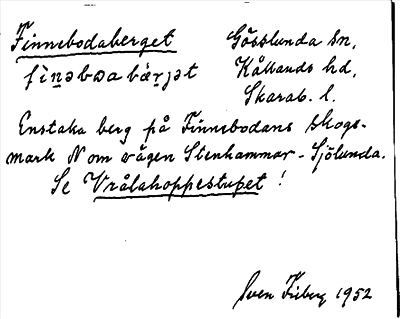 Finnebodaberget
Gösslunda sn,
fìnəbωa bæ̀rjət
Kållands hd,
Skarab. l.
Enstaka berg på Finnebodans skogs-
mark N om vägen Stenhammar - Sjölunda.
Se Vrålahoppestupet !
Sven Friberg 1952